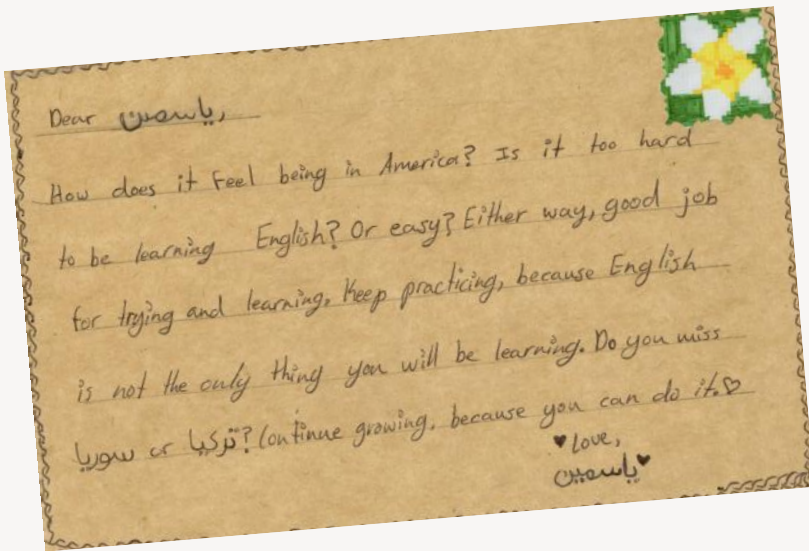 Dear ياسمين,
How does it feel being in America? Is it too hard
to be learning English? Or easy? Either way, good job
for trying and learning. Keep practicing, because English
is not the only thing you will be learning. Do you miss
سوريا or تركيا? Continue growing, because you can do it.♡
♥Love,
ياسمين♥